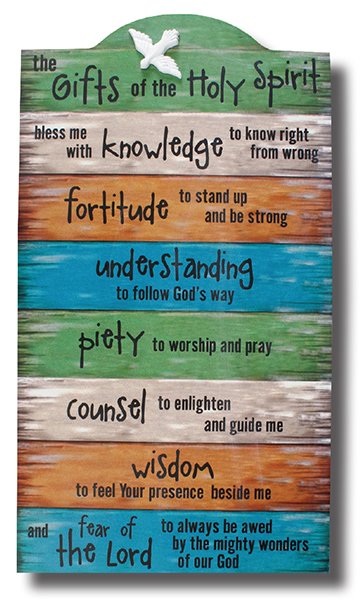 the
Gifts of the Holy Spirit
bless me with knowledge to know right from wrong
fortitude to stand up and be strong
understanding
to follow God's way
piety to worship and pray
counsel to enlighten and guide me
wisdom
to feel Your presence beside me
and fear of the Lord to always be awed by the mighty wonders of our God